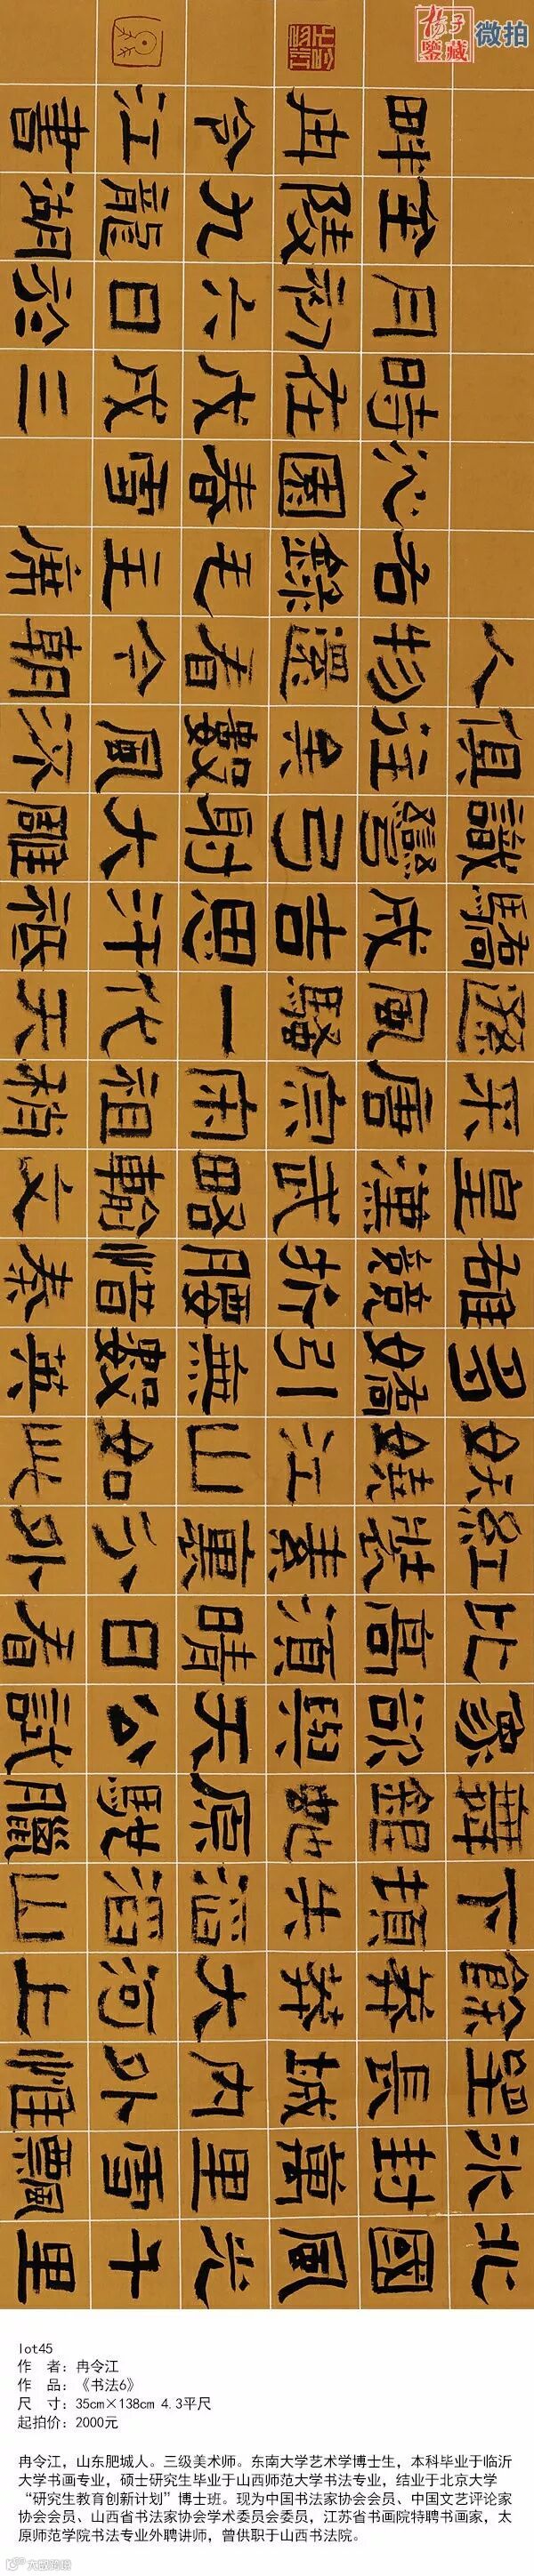 北國風光千里
冰封萬里雪飄
望長城內外惟
餘莽莽大河上
下頓失滔滔山
舞銀蛇原馳臘
象欲與天公試
比高須晴日看
紅裝素裹分外
妖嬈江山如此
多嬌引無數英
雄競折腰惜秦
皇漢武略輸文
采唐宗宋祖稍
遜風騷一代天
驕成吉思汗祗
識彎弓射大雕
俱往矣數風流
人物還看今朝
名錄毛主席
沁園春雪
時在戊戌三
月初六日於
金陵九龍湖
畔冉令江書
扬子
鉴藏
微拍
lot45
作 者：冉令江
作 品：《书法6》
尺 寸：35cm×138cm 4.3平尺
起拍价：2000元
冉令江，山东肥城人。三级美术师。东南大学艺术学博士生，本科毕业于临沂
大学书画专业，硕士研究生毕业于山西师范大学书法专业，结业于北京大学
“研究生教育创新计划”博士班。现为中国书法家协会会员、中国文艺评论家
协会会员、山西省书法家协会学术委员会委员，江苏省书画院特聘书画家，太
原师范学院书法专业外聘讲师，曾供职于山西书法院。